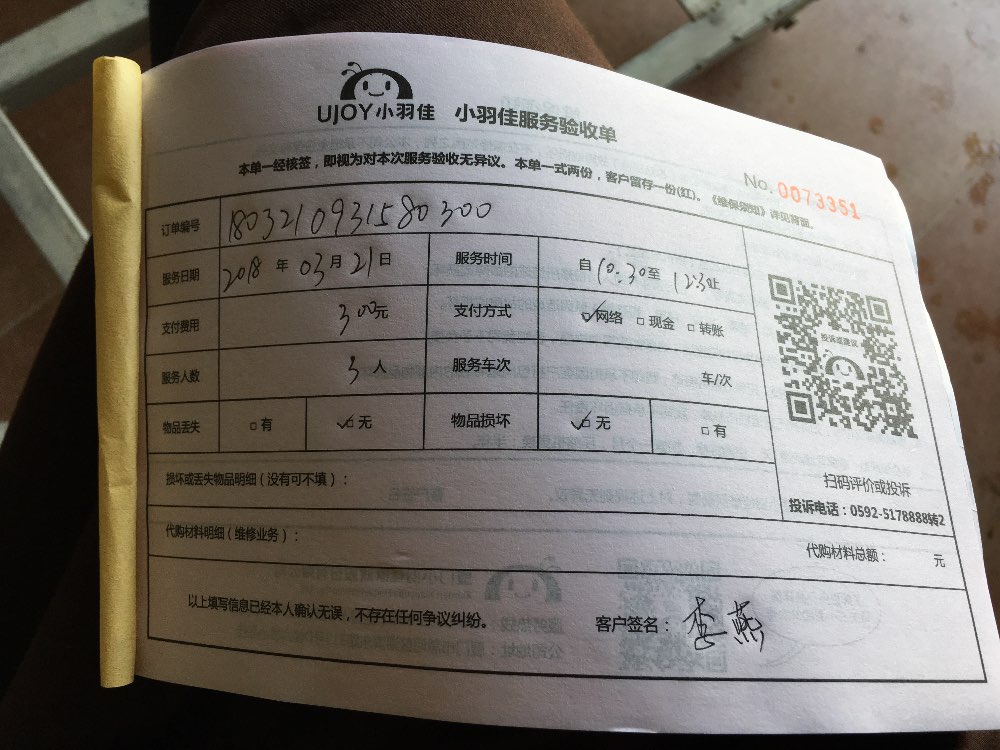 UJOY小羽佳 小羽佳服务验收单
本单一经核签，即视为对本次服务验收无异议。本单一式两份，客户留存一份(红)。《维保须知》详见背面。
No. 0073351
订单编号 1803210931580300
服务日期 2018 年 03 月 21 日 服务时间 自 10:30 至 12:30 止
支付费用 300元 支付方式 ☑网络 □现金 □转账
服务人数 3 人 服务车次 车/次
物品丢失 □有 ☑无 物品损坏 ☑无 □有
投诉或建议
扫码评价或投诉
投诉电话：0592-5178888转2
损坏或丢失物品明细（没有可不填）：
代购材料明细（维修业务）：
代购材料总额： 元
以上填写信息已经本人确认无误，不存在任何争议纠纷。 客户签名：李燕